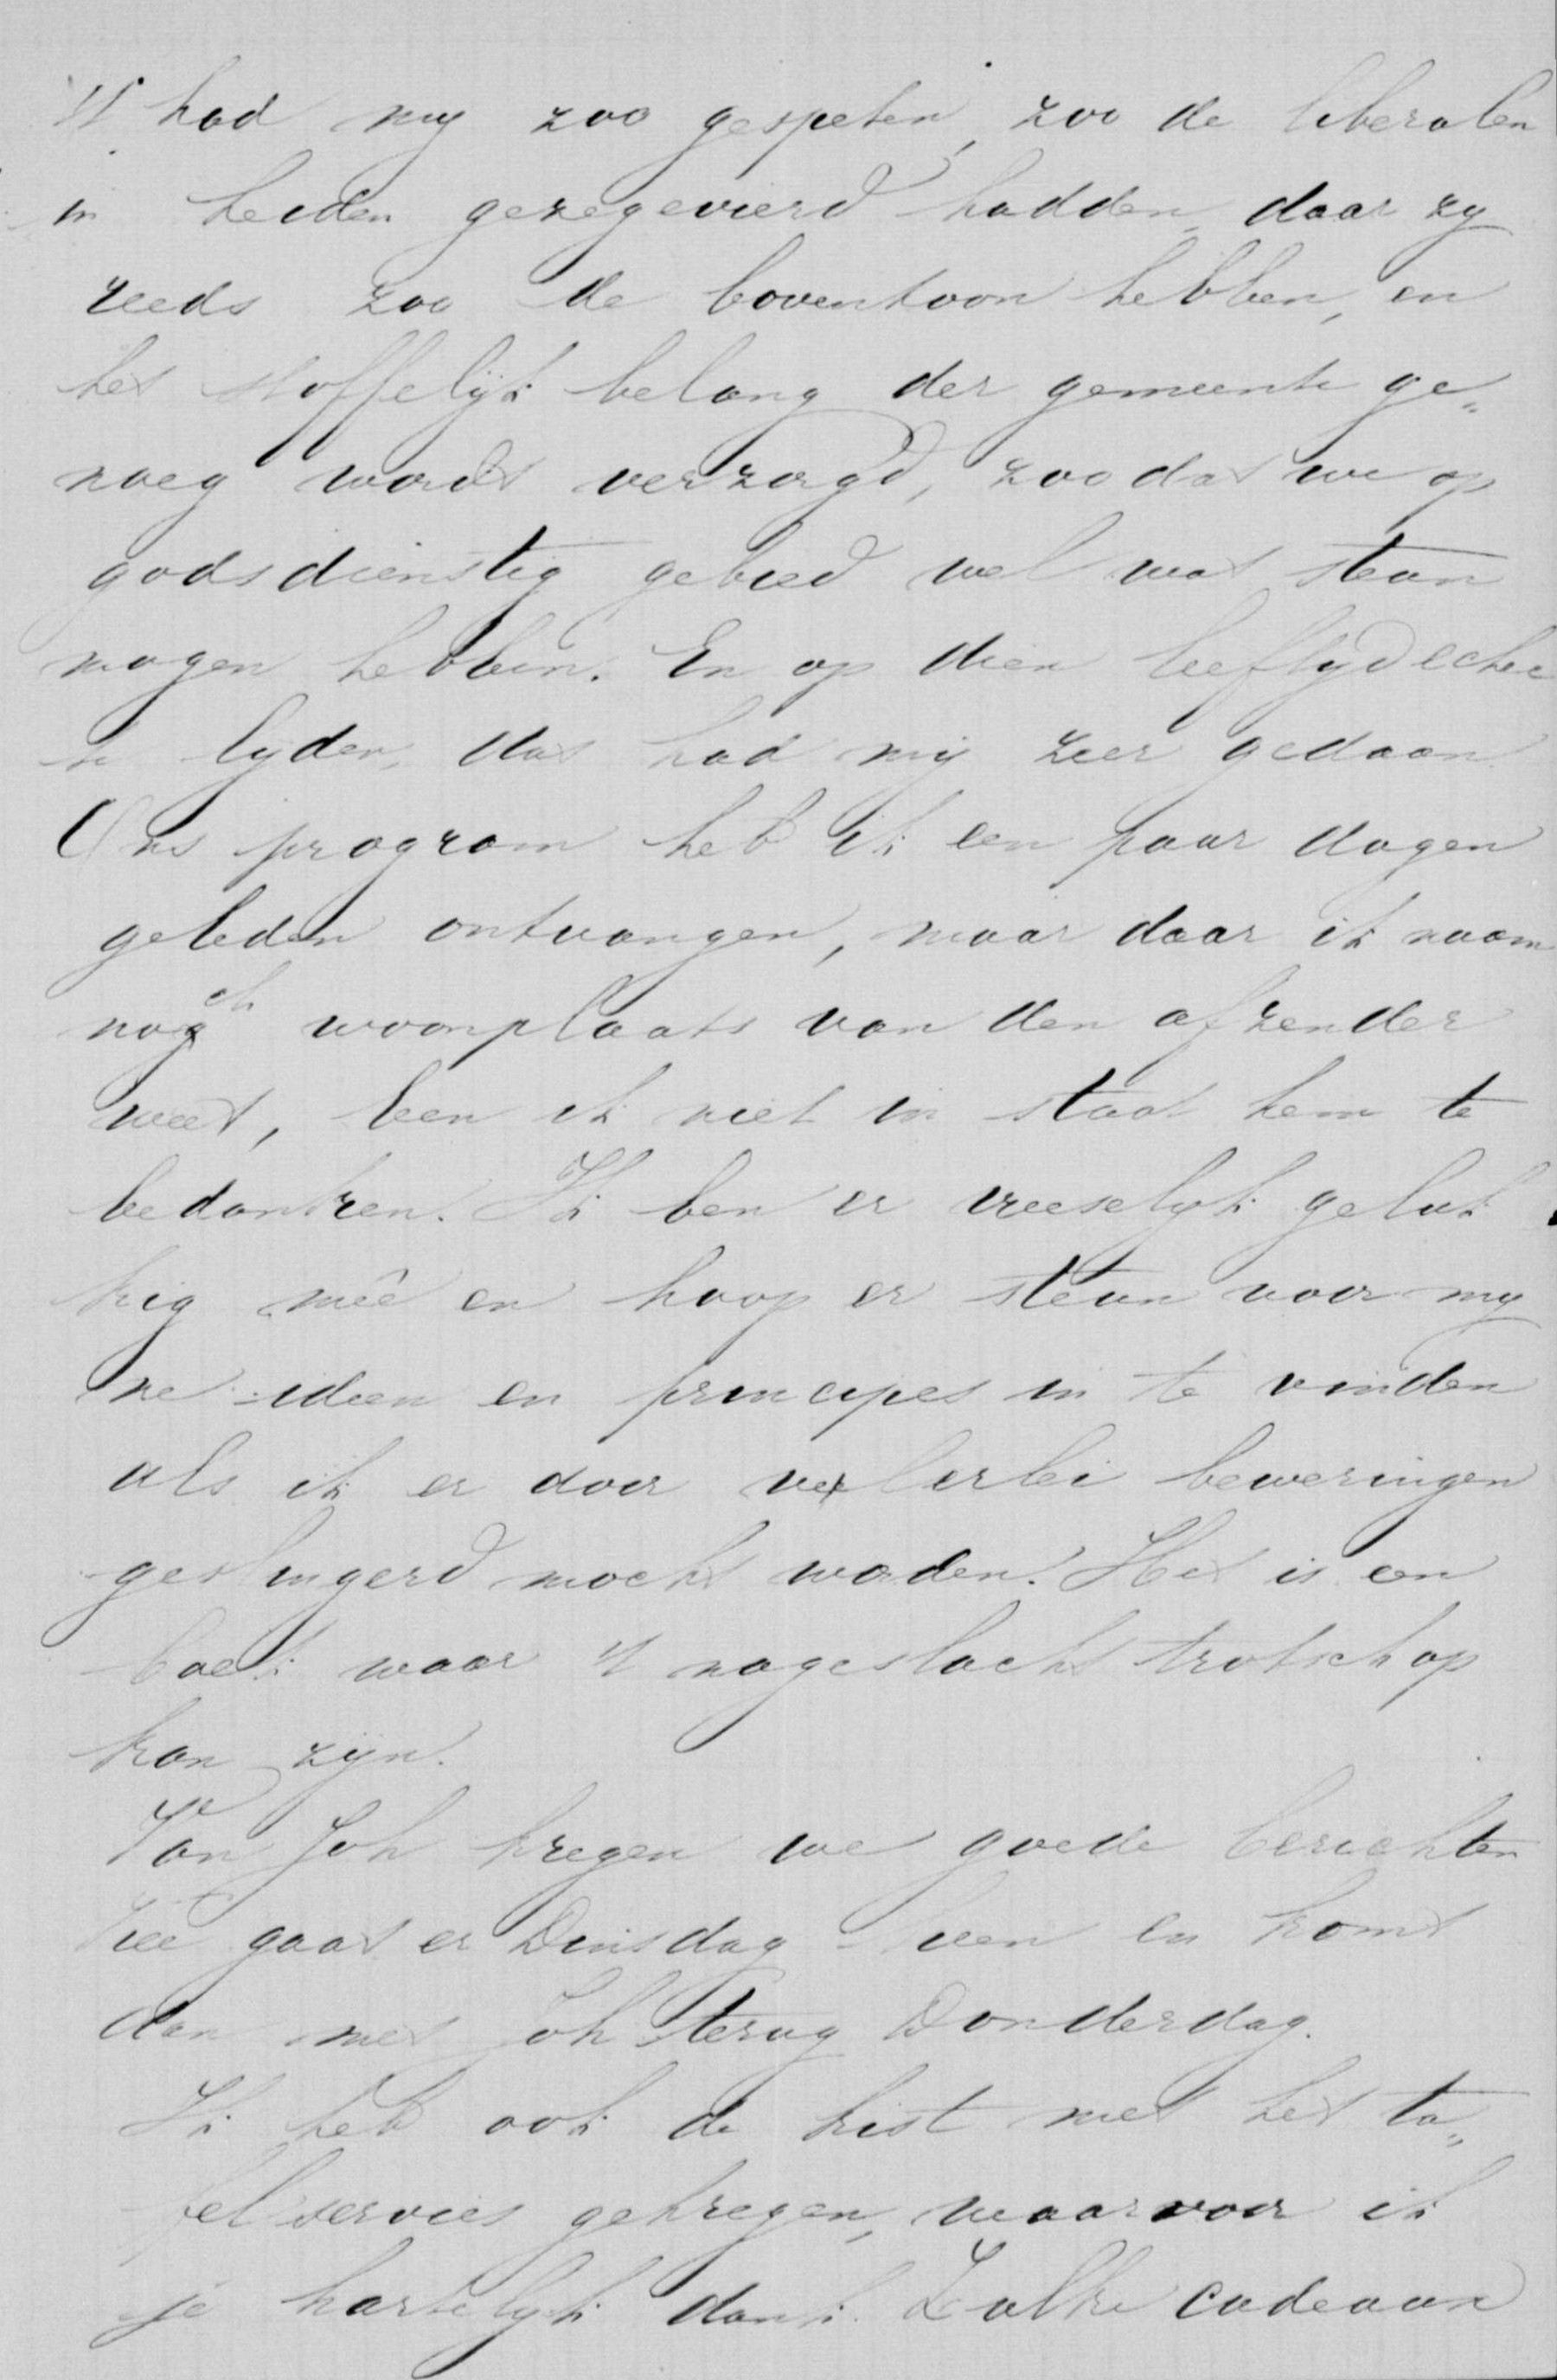 't had my zoo gespeten, zoo de liberalen
in Leiden gezegevierd hadden, daar zy
reeds zoo de boventoon hebben, en
het stoffelijk belang der gemeente ge„
noeg wordt verzorgd, zoodat we op
godsdienstig gebied wel wat steun
mogen hebben. En op dien leeftyd echec
te lyden, dat had mij zeer gedaan.
Ons program heb ik een paar dagen
geleden ontvangen, maar daar ik naam
noch woonplaats van den afzender
weet, ben ik niet in staat hem te
bedanken. Ik ben er vreeselijk geluk
kig meê en hoop er steun voor my
ne ideen en principes in te vinden
als ik er door velerlei beweringen
geslingerd mocht woden. Het is een
boek waar 't nageslacht trotsch op
kan zijn.
Van Joh kregen we goede berichten
gaat er Dinsdag heen en komt
dan met Joh terug Donderdag.
Ik heb ook de kist met het ta„
felservies gekregen, waarvoor ik
je hartelyk dank. Zulke cadeaux